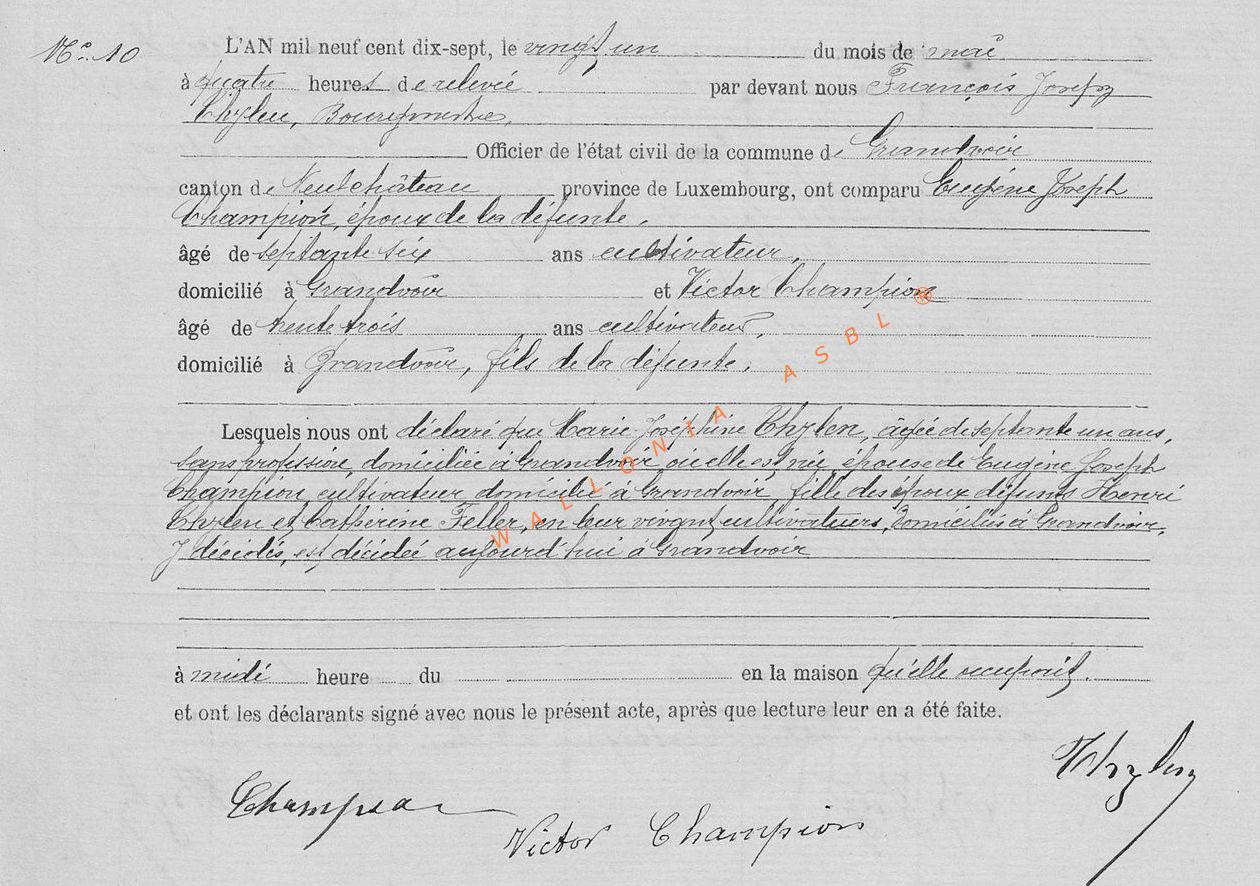 N° 10
L'AN mil neuf cent dix-sept, le vingt un du mois de mai
à quatre heures de relevée par devant nous François Joseph
Thylen, Bourgmestre,
Officier de l'état civil de la commune de Grandvoir
canton de Neufchâteau province de Luxembourg, ont comparu Eugène Joseph
Champion, époux de la défunte,
âgé de septante six ans cultivateur,
domicilié à Grandvoir et Victor Champion
âgé de trente trois ans cultivateur,
domicilié à Grandvoir, fils de la défunte,
Lesquels nous ont déclaré que Marie Joséphine Thylen, âgée de septante un ans,
sans profession, domiciliée à Grandvoir où elle est née, épouse de Eugène Joseph
Champion, cultivateur, domicilié à Grandvoir, fille des époux défunts Henri
Thylen et Catherine Feller, en leur vivant cultivateurs, domiciliés à Grandvoir,
y décédés, est décédée aujourd'hui à Grandvoir
à midi heure du en la maison qu'elle occupait.
et ont les déclarants signé avec nous le présent acte, après que lecture leur en a été faite.
Thylen
Champion
Victor Champion
WALLONIA ASBL ®